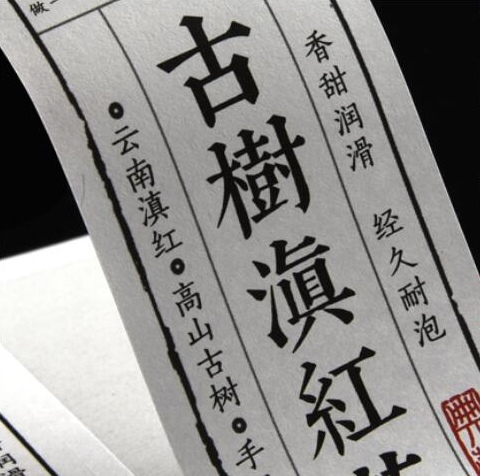 香甜润滑 经久耐泡
古樹滇紅
云南滇红
高山古树
手
做
润滑